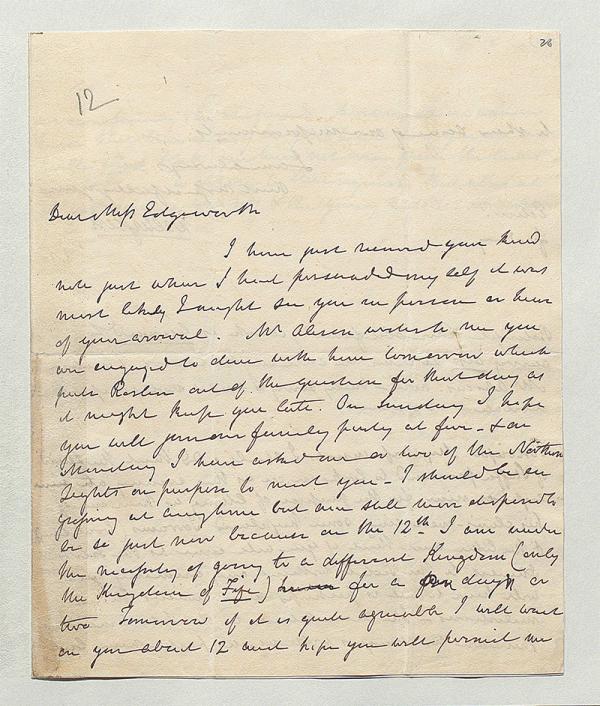 28
12
Dear Miss Edgeworth
I have just received your kind
note just when I had persuaded my self it was
most likely I might see you in person or hear
of your arrival. Mr Alison writes to me you
are engaged to dine with him tomorrow which
puts Roslin out of the question for that day as
it might keep you late. On Sunday I hope
you will join our family party at five - & on
Monday I have asked one or two of the Northern
Lights on purpose to meet you - I should be en
grossing at any time but am still more disposed to
be so just now because on the 12th I am under
the necessity of going to a different Kingdom (only
the Kingdom of Fife) for a day or
two Tomorrow if it is quite agreeable I will wait
on you about 12 and hope you will permit me